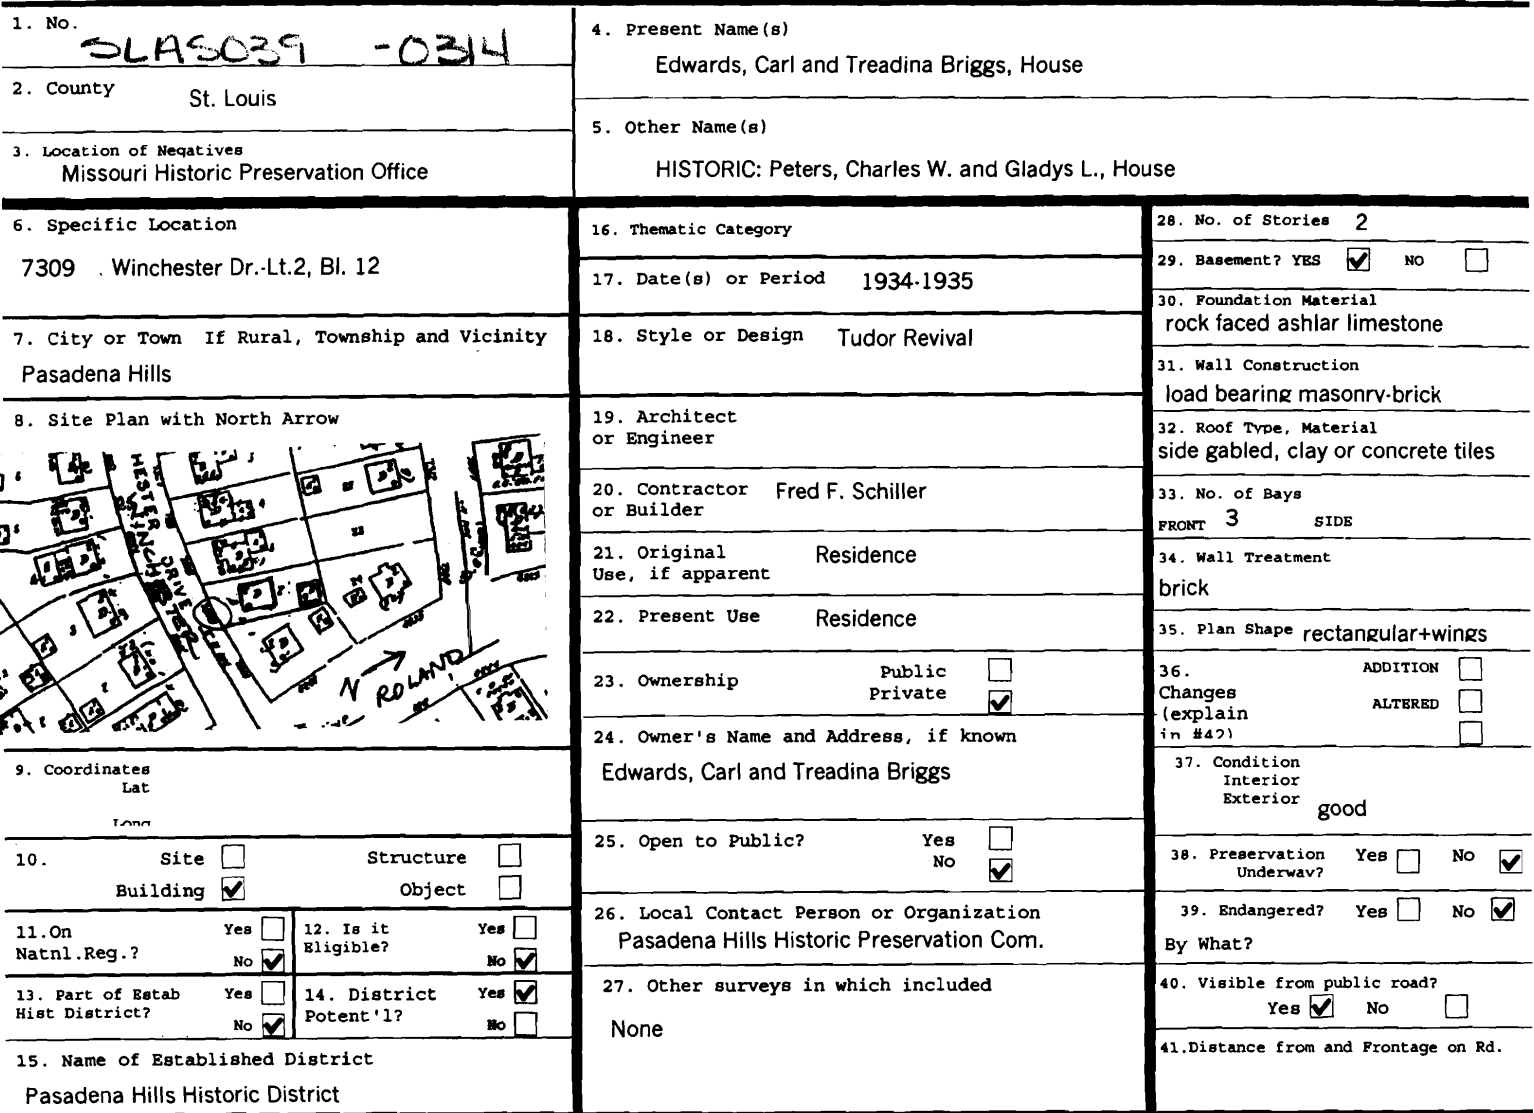 1. No.
SLAS039 -0314
2. County
St. Louis
3. Location of Negatives
Missouri Historic Preservation Office
4. Present Name(s)
Edwards, Carl and Treadina Briggs, House
5. Other Name(s)
HISTORIC: Peters, Charles W. and Gladys L., House
6. Specific Location
7309 . Winchester Dr.-Lt.2, Bl. 12
7. City or Town If Rural, Township and Vicinity
Pasadena Hills
8. Site Plan with North Arrow
WINCHESTER
DRIVE
N
ROLAND
9. Coordinates
Lat
Long
10. Site Structure
Building ✔ Object
11.On Yes
Natnl.Reg.? No ✔
12. Is it Yes
Eligible? No ✔
13. Part of Estab Yes
Hist District? No ✔
14. District Yes ✔
Potent'l? No
15. Name of Established District
Pasadena Hills Historic District
16. Thematic Category
17. Date(s) or Period 1934-1935
18. Style or Design Tudor Revival
19. Architect
or Engineer
20. Contractor Fred F. Schiller
or Builder
21. Original Residence
Use, if apparent
22. Present Use Residence
23. Ownership Public
Private ✔
24. Owner's Name and Address, if known
Edwards, Carl and Treadina Briggs
25. Open to Public? Yes
No ✔
26. Local Contact Person or Organization
Pasadena Hills Historic Preservation Com.
27. Other surveys in which included
None
28. No. of Stories 2
29. Basement? YES ✔ NO
30. Foundation Material
rock faced ashlar limestone
31. Wall Construction
load bearing masonry-brick
32. Roof Type, Material
side gabled, clay or concrete tiles
33. No. of Bays
FRONT 3 SIDE
34. Wall Treatment
brick
35. Plan Shape rectangular+wings
36. ADDITION
Changes
(explain ALTERED
in #42)
37. Condition
Interior
Exterior good
38. Preservation Yes No ✔
Underway?
39. Endangered? Yes No ✔
By What?
40. Visible from public road?
Yes ✔ No
41.Distance from and Frontage on Rd.